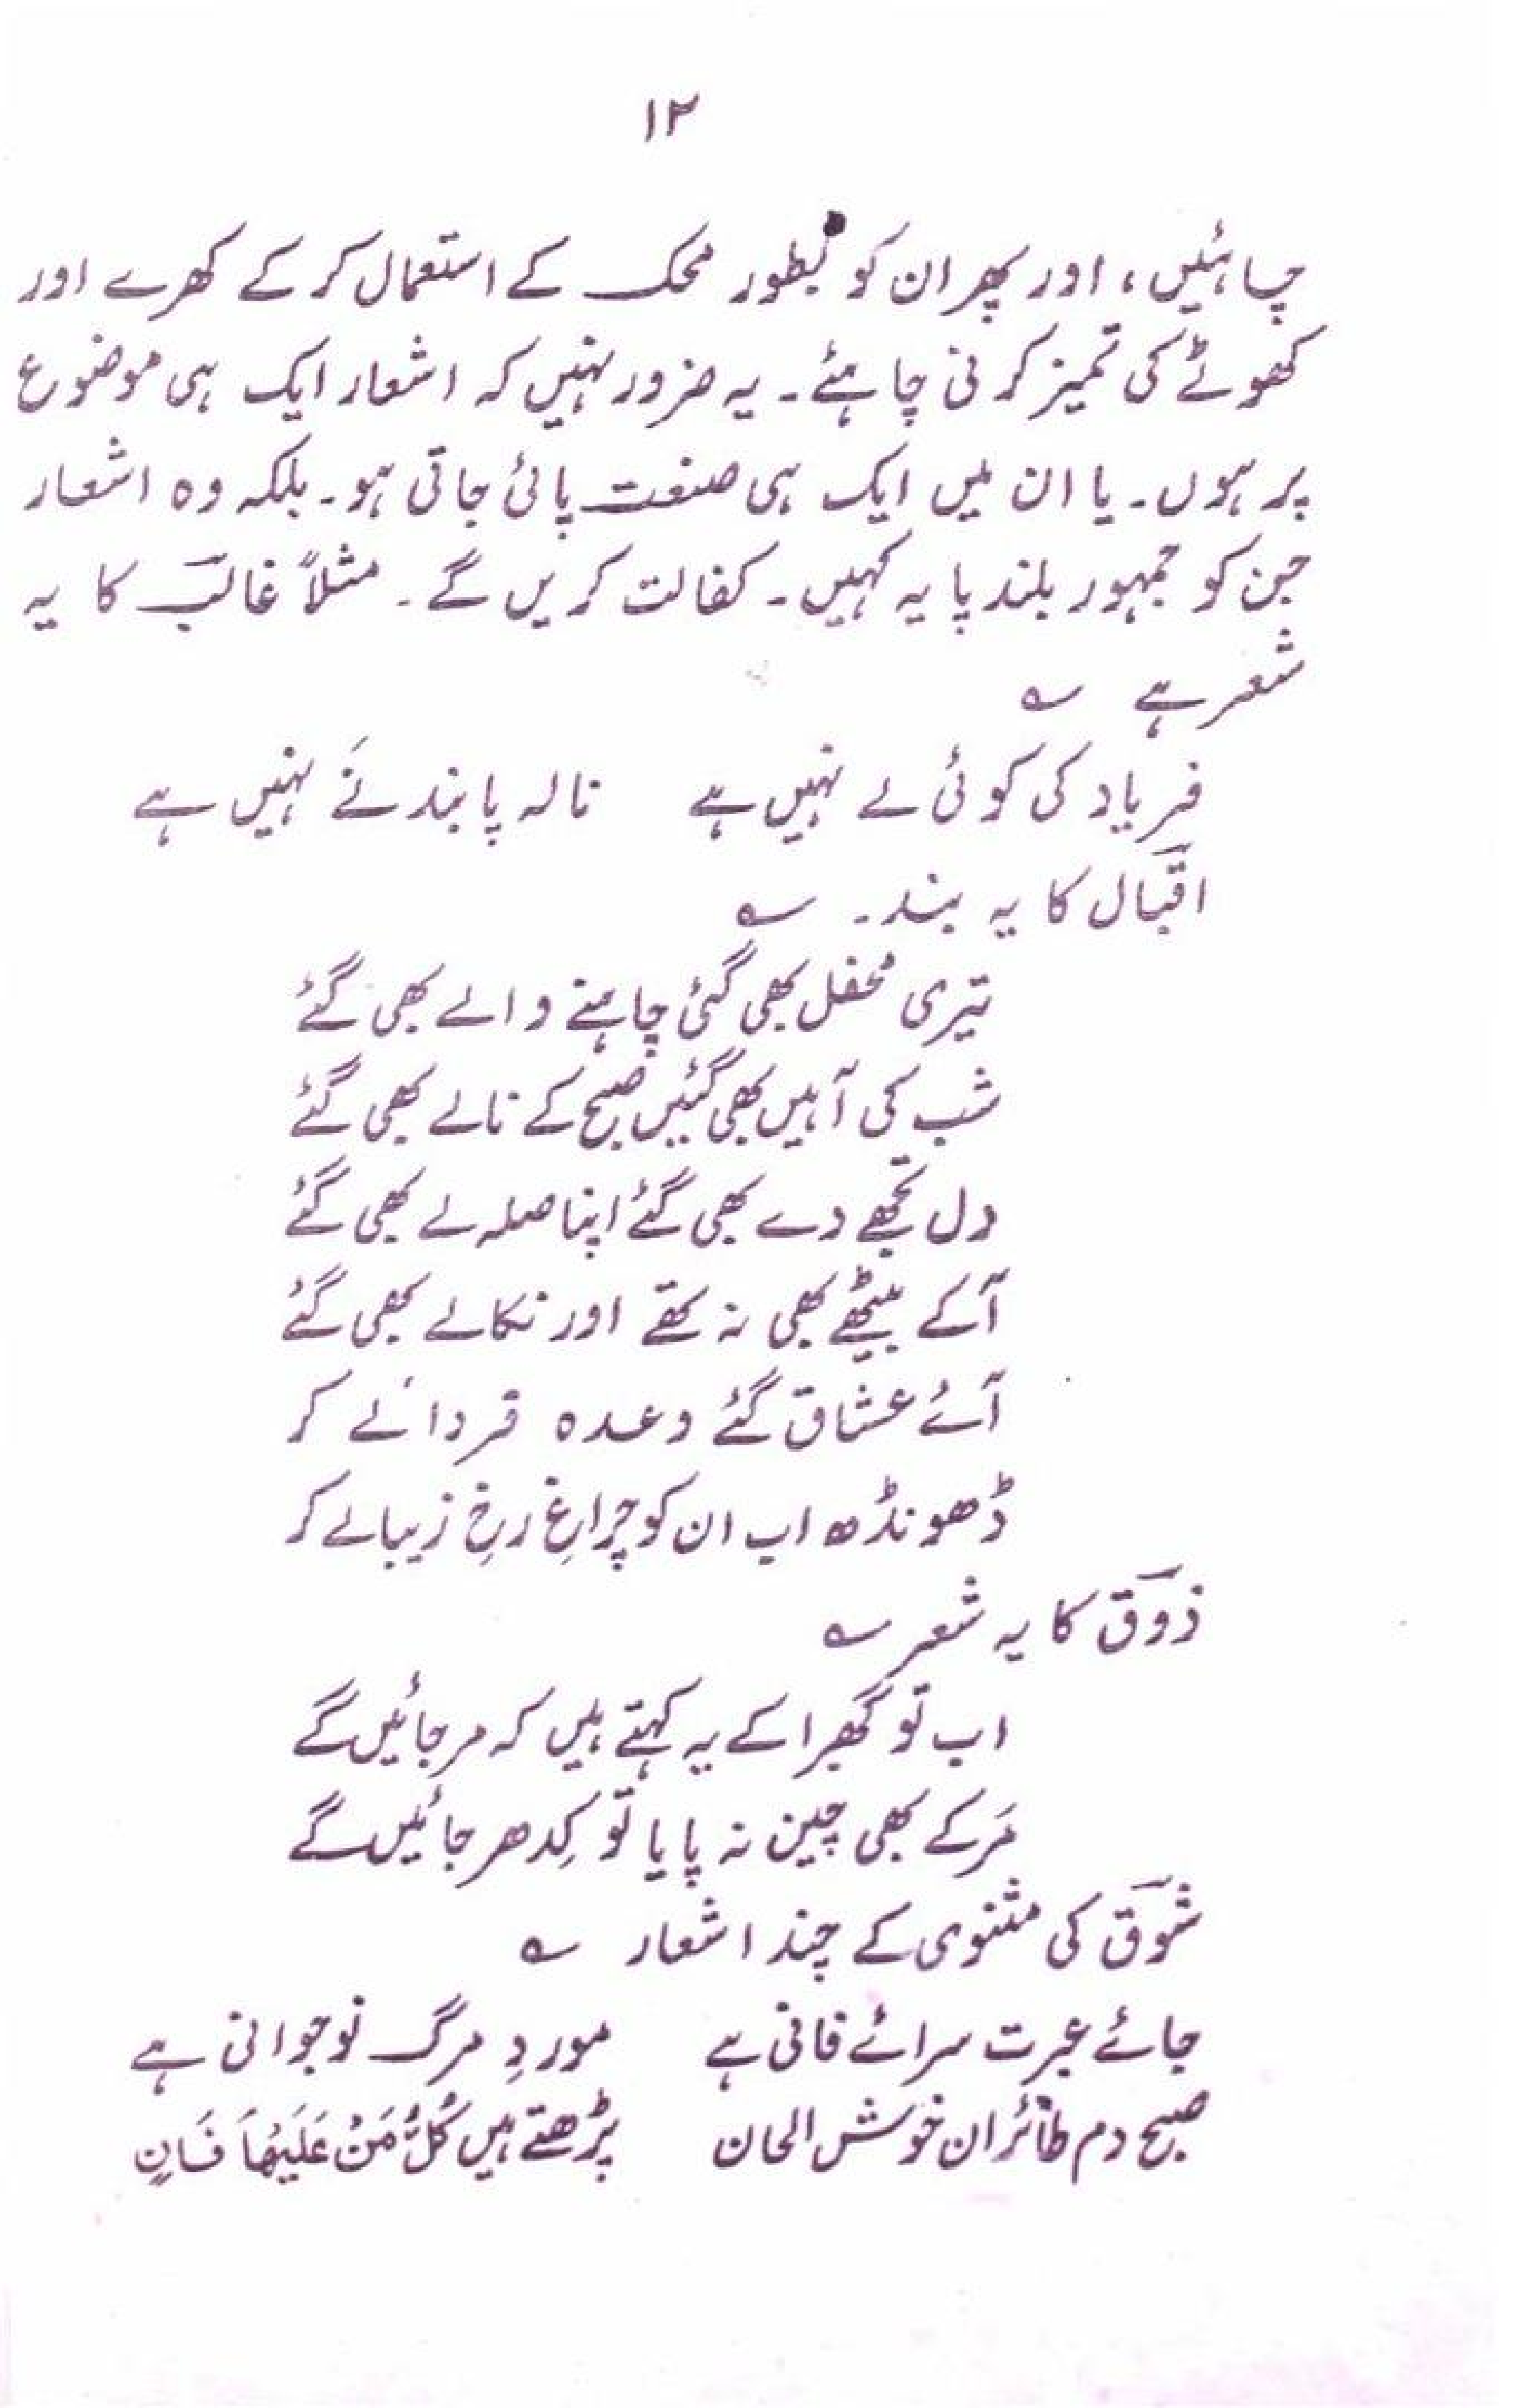 ۱۲
چاہئیں، اور پھر ان کو بطور محک کے استعمال کر کے کھرے اور
کھوٹے کی تمیز کرنی چاہئے۔ یہ ضرور نہیں کہ اشعار ایک ہی موضوع
پر ہوں۔ یا ان میں ایک ہی صنعت پائی جاتی ہو۔ بلکہ وہ اشعار
جن کو جمہور بلند پایہ کہیں۔ کفالت کریں گے۔ مثلاً غالبؔ کا یہ
شعر ہے ؎
فریاد کی کوئی لے نہیں ہے نالہ پابند نَے نہیں ہے
اقبؔال کا یہ بند۔ ؎
تیری محفل بھی گئی چاہنے والے بھی گئے
شب کی آہیں بھی گئیں صبح کے نالے بھی گئے
دل تجھے دے بھی گئے اپنا صلہ لے بھی گئے
آ کے بیٹھے بھی نہ تھے اور نکالے بھی گئے
آئے عشاق گئے وعدہ فردا لے کر
ڈھونڈھ اب ان کو چراغِ رخِ زیبا لے کر
ذوؔق کا یہ شعر ؎
اب تو گھبرا کے یہ کہتے ہیں کہ مر جائیں گے
مَر کے بھی چین نہ پایا تو کِدھر جائیں گے
شوؔق کی مثنوی کے چند اشعار ؎
جائے عبرت سرائے فانی ہے موردِ مرگ نوجوانی ہے
صبح دم طائران خوش الحان پڑھتے ہیں کُلُّ مَنْ عَلَیْهَا فَانٍ